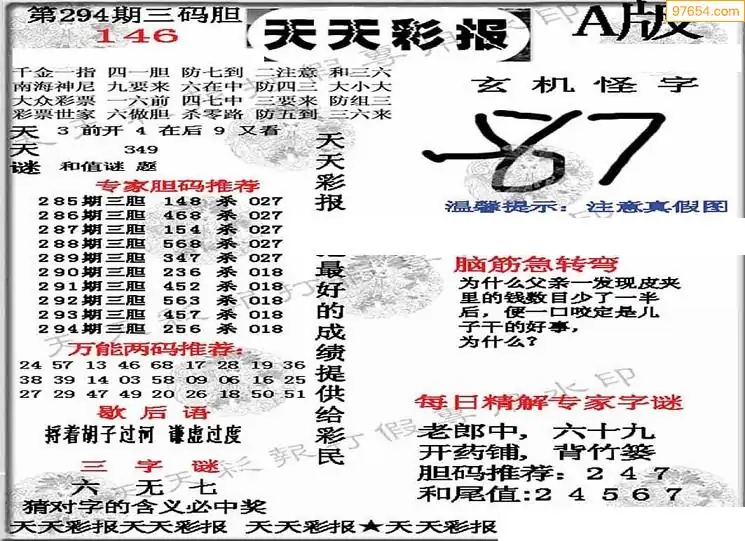 第294期三码胆
146
天天彩报
A版
97654.com
千金一指 四一胆 防七到 二注意 和三六
南海神尼 九要来 六在中 防四三 大小大
大众彩票 一六前 四七中 三要来 防组三
彩票世家 六做胆 杀零路 防五到 三六来
天 3 前开 4 在后 9 又看
天 349
谜 和值谜 题
专家胆码推荐
285期三胆 148 杀 027
286期三胆 468 杀 027
287期三胆 154 杀 027
288期三胆 568 杀 027
289期三胆 347 杀 027
290期三胆 236 杀 018
291期三胆 452 杀 018
292期三胆 563 杀 018
293期三胆 457 杀 018
294期三胆 256 杀 018
万能两码推荐:
24 57 13 46 68 17 28 19 36
38 39 14 03 58 09 06 16 25
27 29 47 49 20 26 18 50 51
歇后语
捋着胡子过河 谦虚过度
三字谜
六 无 七
猜对字的含义必中奖
天天彩报
最好的成绩提供给彩民
玄机怪字
温馨提示：注意真假图
脑筋急转弯
为什么父亲一发现皮夹
里的钱数目少了一半
后，便一口咬定是儿
子干的好事，
为什么?
每日精解专家字谜
老郎中，六十九
开药铺，背竹篓
胆码推荐：2 4 7
和尾值:2 4 5 6 7
天天彩报天天彩报 天天彩报★天天彩报